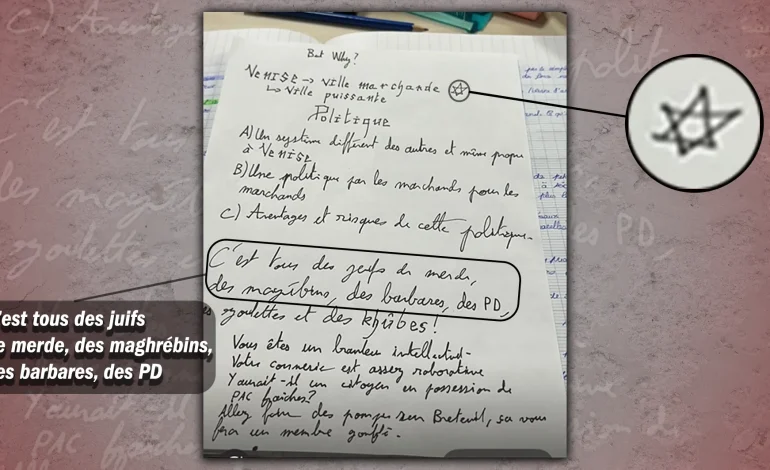 But Why?
VENISE → ville marchande
↳ ville puissante
Politique
A) Un système différent des autres et même propre
à VENISE
B) Une politique par les marchands pour les
marchands
C) Aventages et risques de cette politique.
C'est tous des juifs de merde,
des magibins, des barbares, des PD,
et des khûbes!
Vous êtes un branleur intellectuel.
Votre connerie est assez roborative
Y aurait-il un citoyen en possession de
PAC fraîches?
Allez faire des pompes Breteuil, sa vous
fera un membre gonflé.
'est tous des juifs
e merde, des maghrébins,
es barbares, des PD